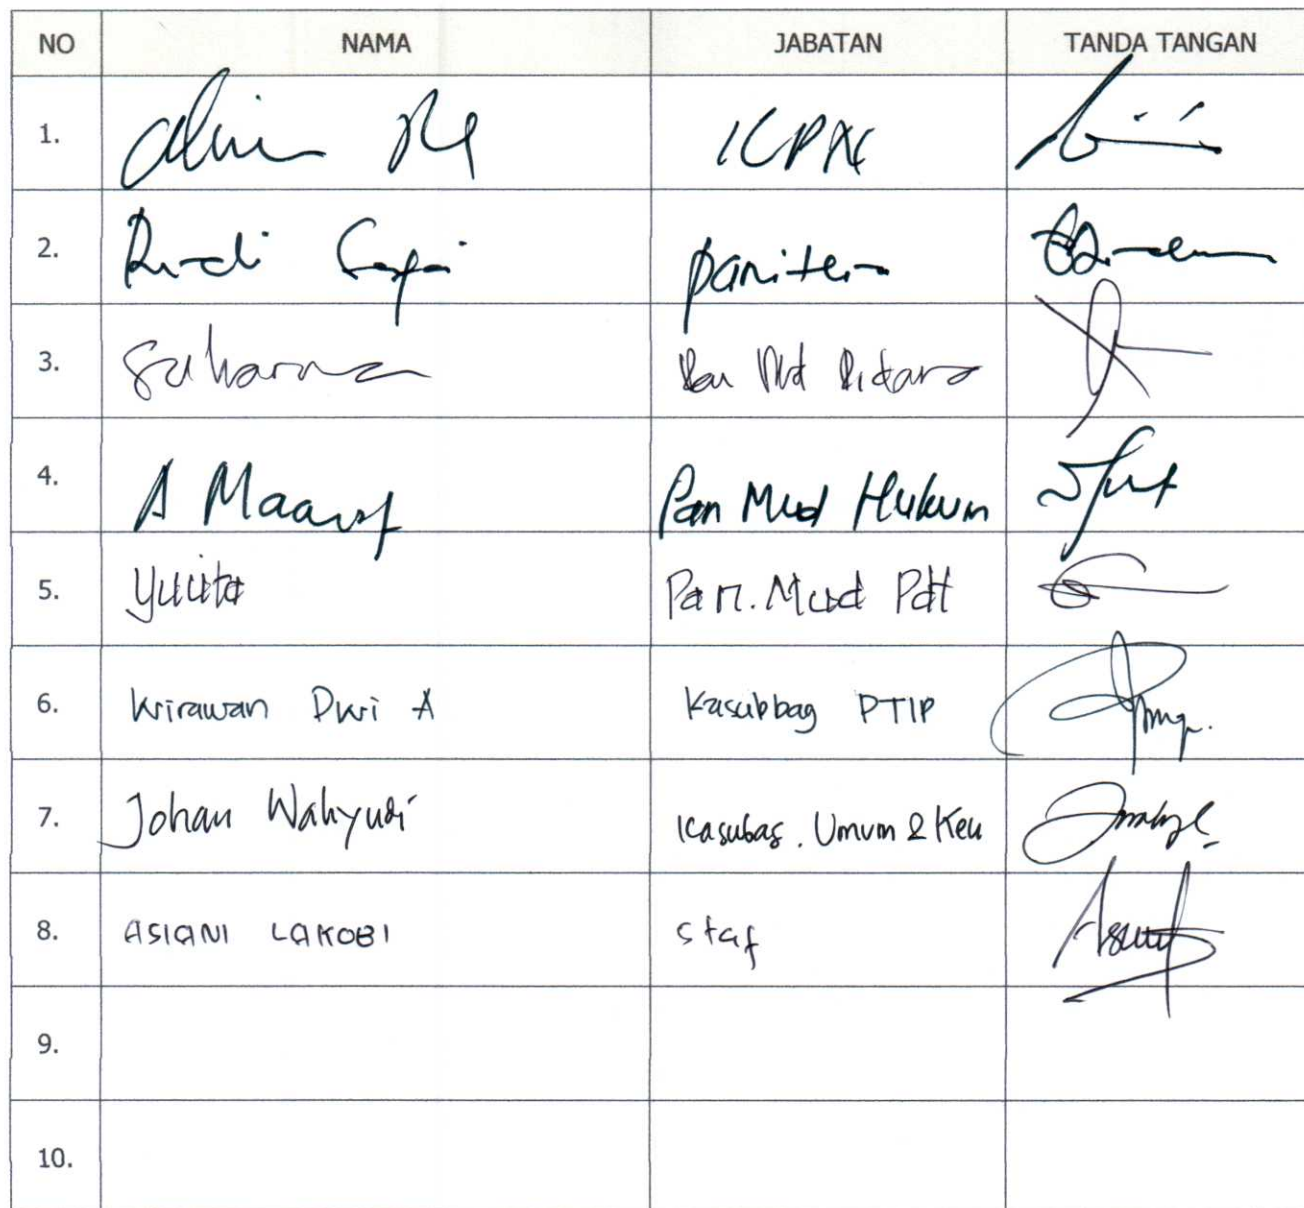 NO NAMA JABATAN TANDA TANGAN
1. KPN
2. Rudi panitera
3. Suharna Pan Md Pidana
4. A Maaruf Pan Mud Hukum
5. Yucita Pan. Mud Pdt
6. Wirawan Dwi A Kasubbag PTIP
7. Johan Wahyudi Kasubag. Umum & Keu
8. ASIANI LAKOBI staf
9.
10.